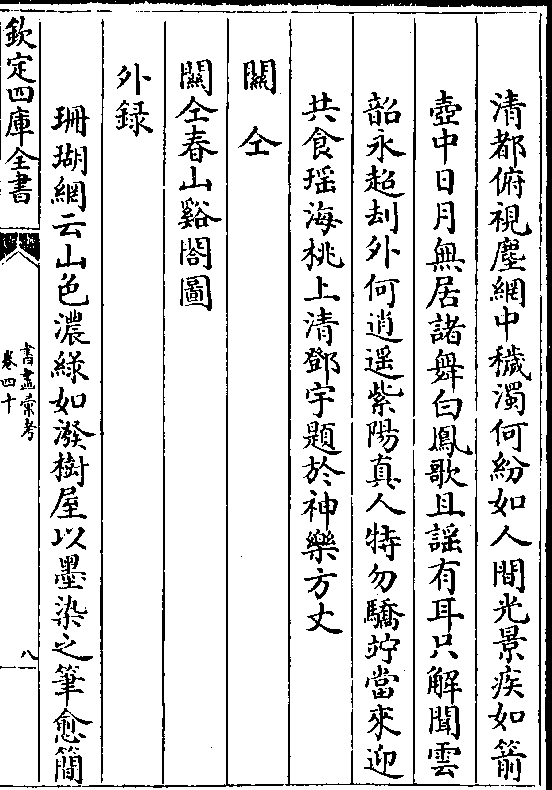 清都俯視塵網中穢濁何紛如人間光景疾如箭
壺中日月無居諸舞白鳳歌且謡有耳只解聞雲
韶永超刦外何逍遥紫陽真人特勿驕竚當來迎
共食瑶海桃上清鄧宇題於神樂方丈
關仝
關仝春山谿閣圖
外録
珊瑚網云山色濃緑如潑樹屋以墨染之筆愈簡
欽定四庫全書
書畫彚考
卷四十
八